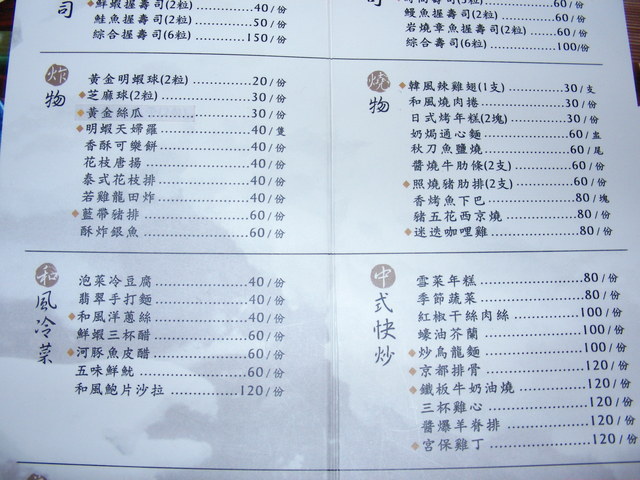 司
◆鮮蝦握壽司(2粒) 40/份
鮭魚握壽司(2粒) 50/份
綜合握壽司(6粒) 150/份
60/份
鰻魚握壽司(2粒) 60/份
岩燒章魚握壽司(2粒) 60/份
綜合壽司(6粒) 100/份
炸物
黃金明蝦球(2粒) 20/份
◆芝麻球(2粒) 30/份
◆黃金絲瓜 30/份
◆明蝦天婦羅 40/隻
香酥可樂餅 40/份
花枝唐揚 40/份
泰式花枝排 40/份
若雞龍田炸 40/份
◆藍帶豬排 60/份
酥炸銀魚 60/份
燒物
◆韓風辣雞翅(1支) 30/支
和風燒肉捲 30/份
日式烤年糕(2塊) 30/份
奶焗通心麵 60/盅
秋刀魚鹽燒 60/尾
醬燒牛肋條(2支) 60/份
◆照燒豬肋排(2支) 60/份
香烤魚下巴 80/塊
豬五花西京燒 80/份
◆迷迭咖哩雞 80/份
和風冷菜
泡菜冷豆腐 40/份
翡翠手打麵 40/份
◆和風洋蔥絲 40/份
鮮蝦三杯醋 60/份
◆河豚魚皮醋 60/份
五味鮮魷 60/份
和風鮑片沙拉 120/份
中式快炒
雪菜年糕 80/份
季節蔬菜 80/份
紅椒干絲肉絲 100/份
蠔油芥蘭 100/份
◆炒烏龍麵 100/份
◆京都排骨 120/份
◆鐵板牛奶油燒 120/份
三杯雞心 120/份
醬爆羊脊排 120/份
◆宮保雞丁 120/份